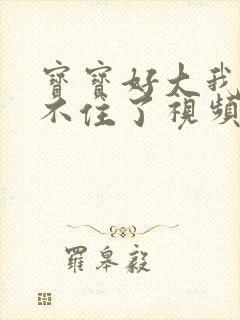 寶寶好大我
不住了視頻
羅皋毅